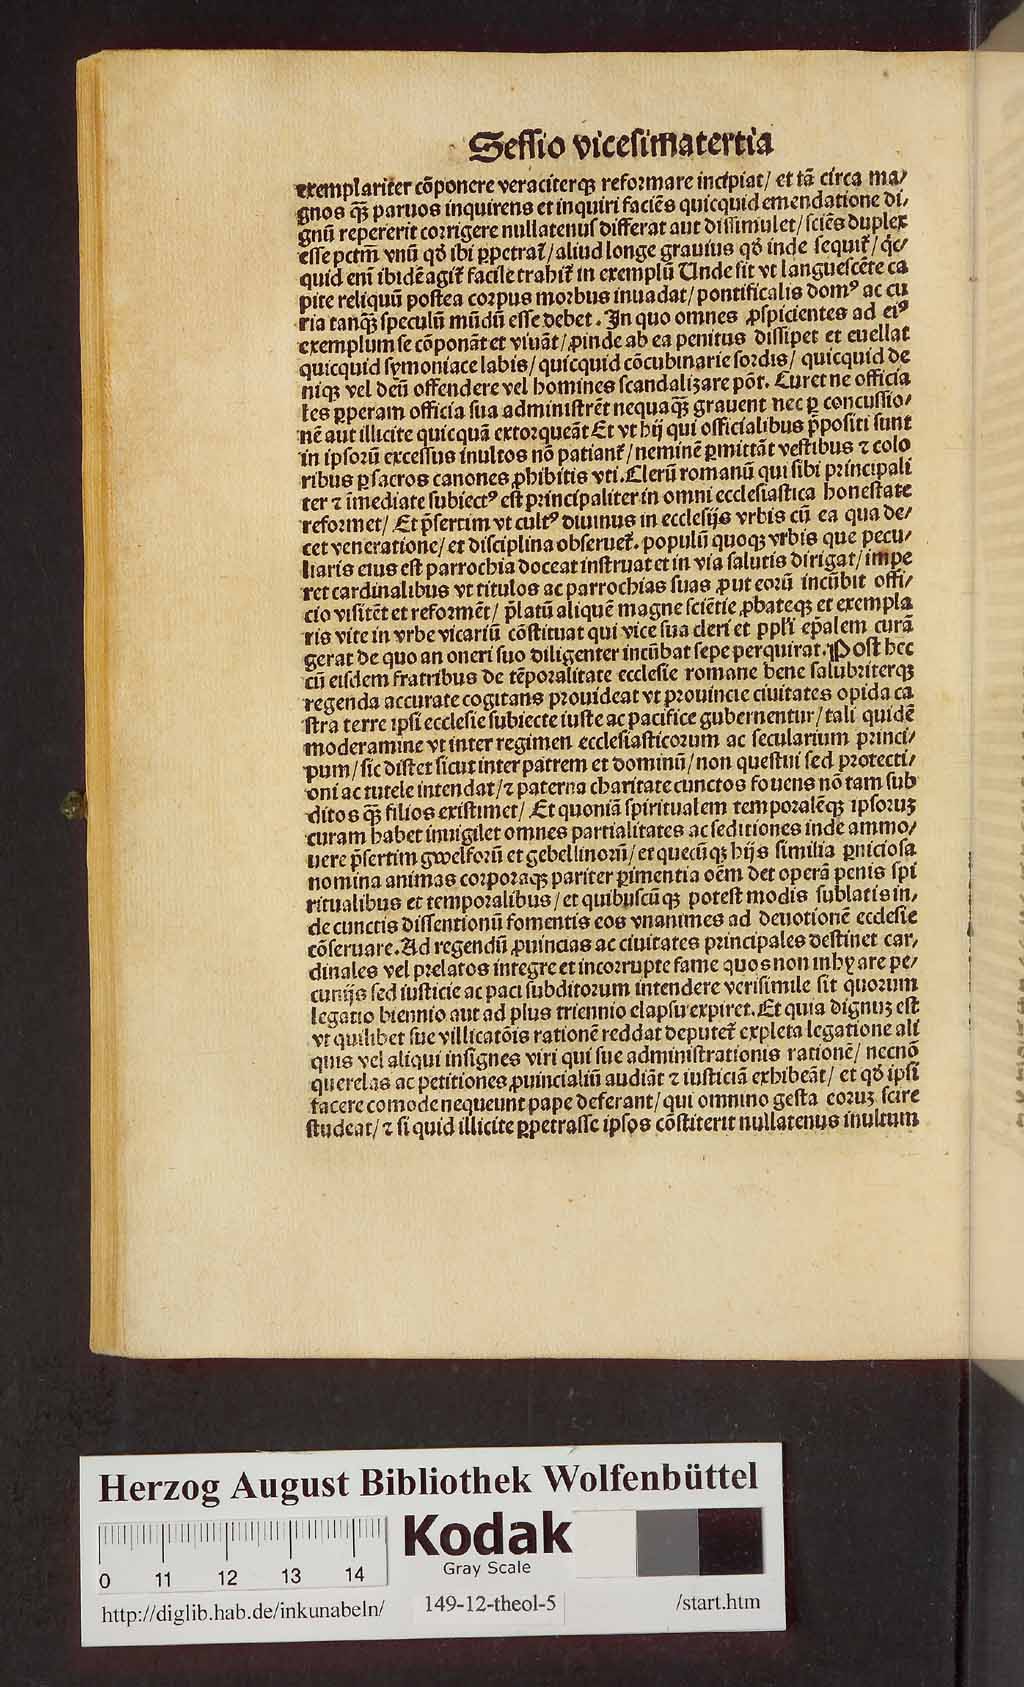 Seſſio viceſimatertia
exemplariter cõponere veraciterqꝫ reformare incipiat/ et tã circa ma/
gnos qꝫ̃ paruos inquirens et inquiri faciẽs quicquid emendatione di/
gnũ repererit corrigere nullatenuſ differat aut diſſimulet/ ſciẽs duplex
eſſe pctm̃ vnũ qð ibi ꝑpetrat᷑/ aliud longe grauius qð inde ſequit᷑/ q̃c/
quid enĩ ibidẽ agit᷑ facile trahit᷑ in exemplũ Unde fit vt langueſcẽte ca
pite reliquũ poſtea corpus morbus inuadat/ pontificalis domꝰ ac cu
ria tanqꝫ̃ ſpeculũ mũdũ eſſe debet. In quo omnes ꝓſpicientes ad eiꝰ
exemplum ſe cõponãt et viuãt/ ꝓinde ab ea penitus diſſipet et euellat
quicquid ſymoniace labis/ quicquid cõcubinarie ſordis/ quicquid de
niqꝫ vel deũ offendere vel homines ſcandalizare põt. Curet ne officia
les ꝑperam officia ſua adminiſtrẽt nequaqꝫ̃ grauent nec ꝑ concuſſio/
nẽ aut illicite quicquã extorqueãt Et vt hij qui officialibus p̃poſiti ſunt
in ipſorũ exceſſus inultos nõ patiant᷑/ neminẽ ꝑmittãt veſtibus ⁊ colo
ribus ꝑ ſacros canones ꝓhibitis vti. Clerũ romanũ qui ſibi principali
ter ⁊ ĩmediate ſubiectꝰ eſt principaliter in omni eccleſiaſtica honeſtate
reformet/ Et p̃ſertim vt cultꝰ diuinus in eccleſijs vrbis cũ ea qua de/
cet veneratione/ et diſciplina obſeruet᷑. populũ quoqꝫ vrbis que pecu/
liaris eius eſt parrochia doceat inſtruat et in via ſalutis dirigat/ impe
ret cardinalibus vt titulos ac parrochias ſuas ꝓut eorũ incũbit offi/
cio viſitẽt et reformẽt/ p̃latũ aliquẽ magne ſciẽtie ꝓbateqꝫ et exempla
ris vite in vrbe vicariũ cõſtituat qui vice ſua cleri et ppl̃i ep̃alem curã
gerat de quo an oneri ſuo diligenter incũbat ſepe perquirat. Poſt hec
cũ eiſdem fratribus de tẽporalitate eccleſie romane bene ſalubriterqꝫ
regenda accurate cogitans prouideat vt prouincie ciuitates opida ca
ſtra terre ipſi eccleſie ſubiecte iuſte ac pacifice gubernentur/ tali quidẽ
moderamine vt inter regimen eccleſiaſticorum ac ſecularium princi/
pum/ ſic diſtet ſicut inter patrem et dominũ/ non queſtui ſed protecti/
oni ac tutele intendat/ ⁊ paterna charitate cunctos fouens nõ tam ſub
ditos qꝫ̃ filios exiſtimet/ Et quoniã ſpiritualem temporalẽqꝫ ipſoruꝫ
curam habet inuigilet omnes partialitates ac ſeditiones inde ammo/
uere p̃ſertim gwelforũ et gebellinorũ/ et quecũqꝫ hijs ſimilia ꝑnicioſa
nomina animas corporaqꝫ pariter ꝑimentia oẽm det operã penis ſpi
ritualibus et temporalibus/ et quibuſcũqꝫ poteſt modis ſublatis in/
de cunctis diſſentionũ fomentis eos vnanimes ad deuotionẽ eccleſie
cõſeruare. Ad regendũ ꝓuincias ac ciuitates principales deſtinet car/
dinales vel prelatos integre et incorrupte fame quos non inhyare pe/
cunijs ſed iuſticie ac paci ſubditorum intendere veriſimile ſit quorum
legatio biennio aut ad plus triennio elapſu expiret. Et quia dignuꝫ eſt
vt quilibet ſue villicatõis rationẽ reddat deputet᷑ expleta legatione ali
quis vel aliqui inſignes viri qui ſue adminiſtrationis rationẽ/ necnõ
querelas ac petitiones ꝓuincialiũ audiãt ⁊ iuſticiã exhibeãt/ et qð ipſi
facere comode nequeunt pape deferant/ qui omnino geſta eoruꝫ ſcire
ſtudeat/ ⁊ ſi quid illicite ꝑpetraſſe ipſos cõſtiterit nullatenus inultum
Herzog August Bibliothek Wolfenbüttel
Kodak
Gray Scale
0 11 12 13 14
http://diglib.hab.de/inkunabeln/ 149-12-theol-5 /start.htm